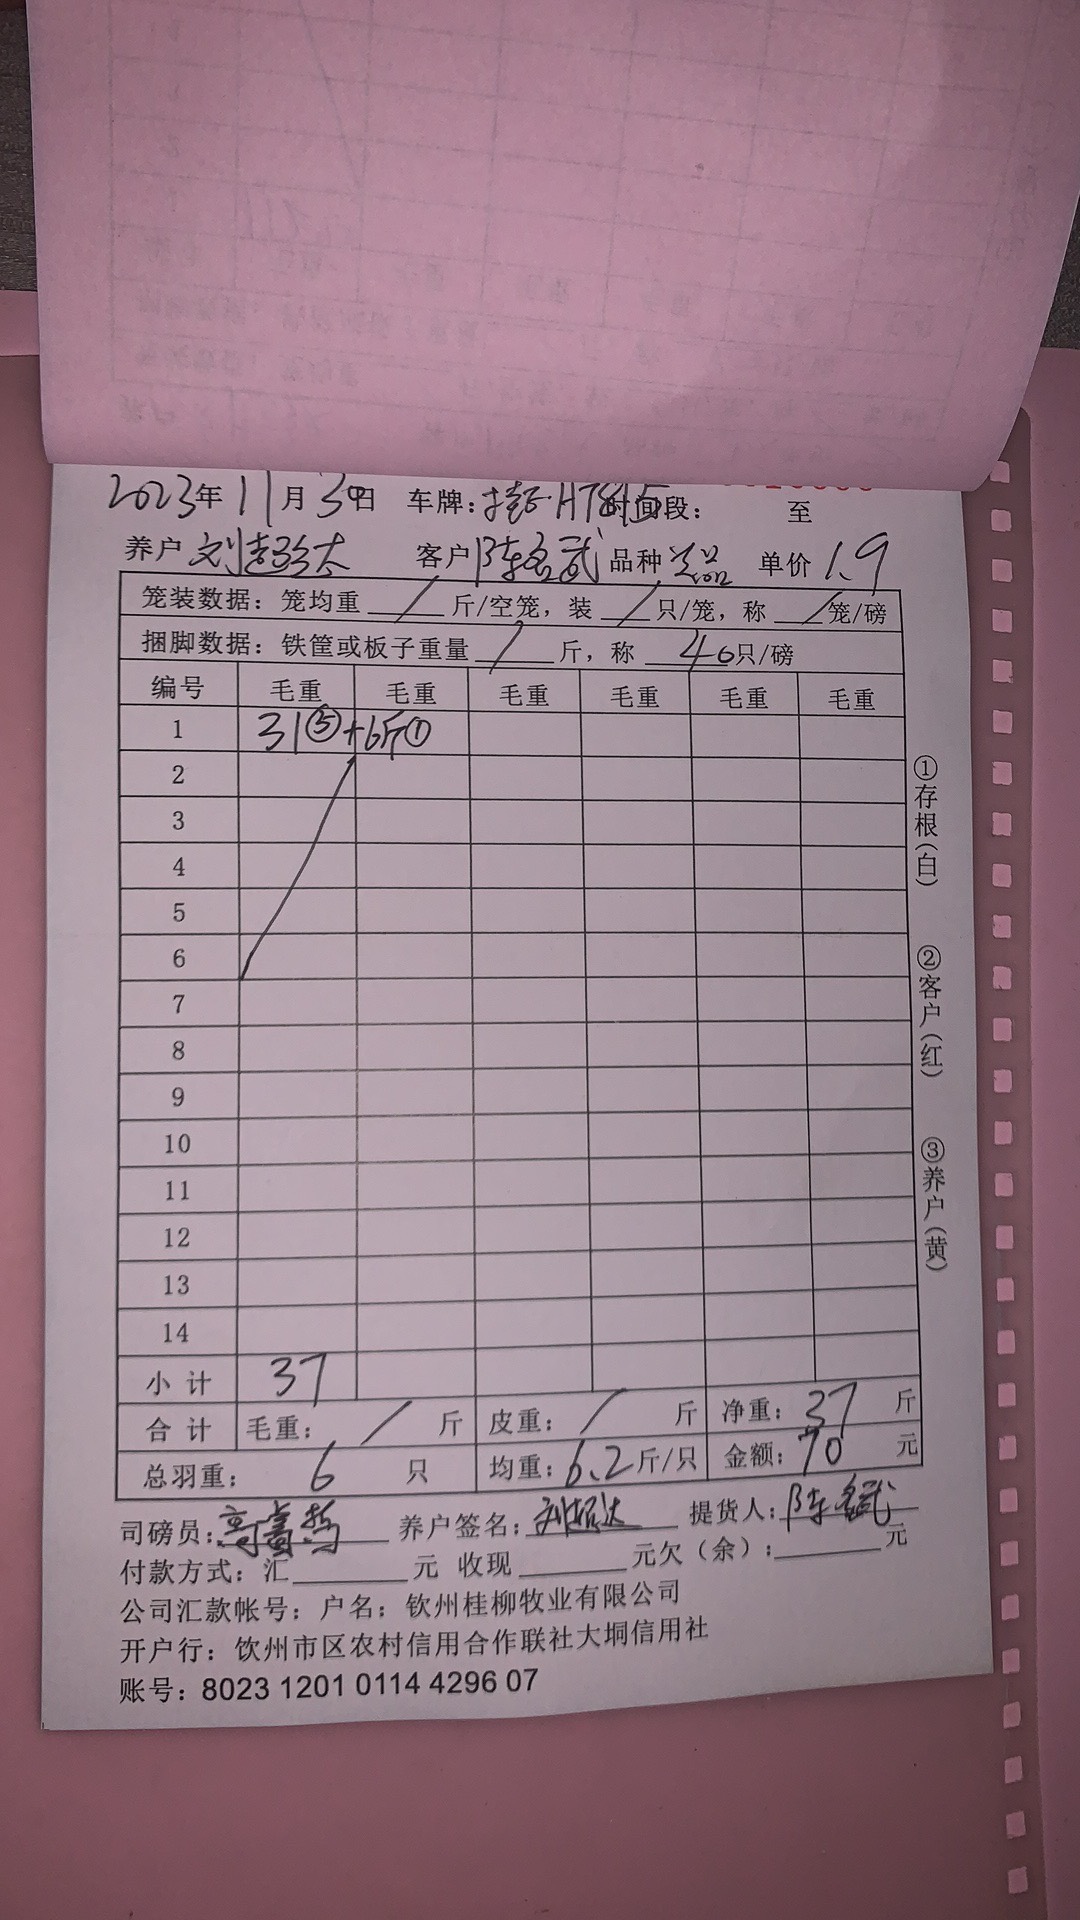 2023年 11月 30日 车牌: 时间段: 至
养户 刘 客户 陈名武 品种 单价 1.9
笼装数据: 笼均重 / 斤/空笼, 装 / 只/笼, 称 / 笼/磅
捆脚数据: 铁筐或板子重量 / 斤, 称 40 只/磅
编号 毛重 毛重 毛重 毛重 毛重 毛重
1 31⑤+6斤①
2
3
4
5
6
7
8
9
10
11
12
13
14
小计 37
合计 毛重: / 斤 皮重: / 斤 净重: 37 斤
总羽重: 6 只 均重: 6.2 斤/只 金额: 70 元
司磅员: 养户签名: 刘 提货人: 陈名武
付款方式: 汇 元 收现 元欠(余): 元
公司汇款帐号: 户名: 钦州桂柳牧业有限公司
开户行: 钦州市区农村信用合作联社大垌信用社
账号: 8023 1201 0114 4296 07
①存根(白)
②客户(红)
③养户(黄)